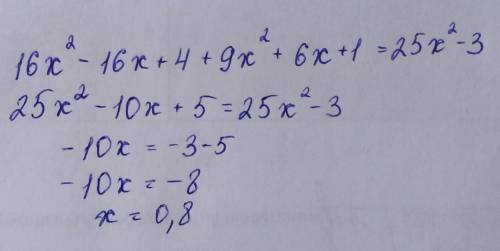 16x² - 16x + 4 + 9x² + 6x + 1 = 25x² - 3
25x² - 10x + 5 = 25x² - 3
-10x = -3-5
-10x = -8
x = 0,8